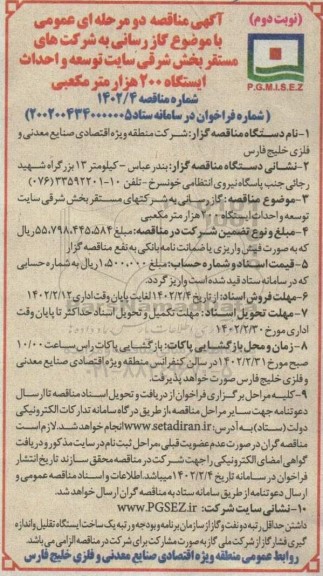 (نوبت دوم)
آگهی مناقصه دو مرحله ای عمومی
با موضوع گاز رسانی به شرکت های
مستقر بخش شرقی سایت توسعه و احداث
ایستگاه ۲۰۰ هزار متر مکعبی
P.G.M.I.S.E.Z
شماره مناقصه ۱۴۰۲/۴
(شماره فراخوان در سامانه ستاد ۲۰۰۲۰۰۴۳۴۰۰۰۰۰۵)
۱-نام دستگاه مناقصه گزار: شرکت منطقه ویژه اقتصادی صنایع معدنی و
فلزی خلیج فارس
۲-نشانی دستگاه مناقصه گزار: بندرعباس - کیلومتر ۱۳ بزرگراه شهید
رجائی جنب پاسگاه نیروی انتظامی خونسرخ - تلفن ۱۰-۳۳۵۹۲۲۰۱ (۰۷۶)
۳-موضوع مناقصه: گاز رسانی به شرکتهای مستقر بخش شرقی سایت
توسعه و احداث ایستگاه ۲۰۰ هزار متر مکعبی
۴-مبلغ و نوع تضمین شرکت در مناقصه: مبلغ ۵۵,۷۹۸,۴۴۵,۵۸۴ ریال
که به صورت فیش واریزی یا ضمانت نامه بانکی به نفع مناقصه گزار
۵-قیمت اسناد و شماره حساب: مبلغ ۱,۵۰۰,۰۰۰ ریال به شماره حسابی
که در سامانه ستاد قید شده است واریز گردد.
۶-مهلت فروش اسناد: از تاریخ ۱۴۰۲/۲/۴ لغایت پایان وقت اداری ۱۴۰۲/۲/۱۲
۷-مهلت تحویل اسناد: مهلت تکمیل و تحویل اسناد حداکثر تا پایان وقت
اداری مورخ ۱۴۰۲/۲/۳۰
۸-زمان و محل بازگشایی پاکات: بازگشایی پاکات راس ساعت ۱۰/۰۰
صبح مورخ ۱۴۰۲/۲/۳۱ در سالن کنفرانس منطقه ویژه اقتصادی صنایع معدنی
و فلزی خلیج فارس صورت خواهد پذیرفت
۹-کلیه مراحل برگزاری فراخوان از دریافت و تحویل اسناد مناقصه تا ارسال
دعوتنامه جهت سایر مراحل مناقصه، از طریق درگاه سامانه تدارکات الکترونیکی
دولت (ستاد) به آدرس: www.setadiran.ir انجام خواهد شد. لازم است
مناقصه گران در صورت عدم عضویت قبلی، مراحل ثبت نام در سایت مذکور و دریافت
گواهی امضای الکترونیکی را جهت شرکت در مناقصه محقق سازند تاریخ انتشار
فراخوان در سامانه تاریخ ۱۴۰۲/۲/۴ میباشد اطلاعات و اسناد مناقصه عمومی و
ارسال دعوتنامه از طریق سامانه ستاد به مناقصه گران ارسال خواهد شد.
۱۰-نشانی سایت شرکت: WWW.PGSEZ.ir
داشتن حداقل رتبه دو نفت و گاز از سازمان برنامه و بودجه و رتبه یک ساخت ایستگاه تقلیل و اندازه
گیری فشار گاز از شرکت ملی گاز به صورت مشارکت برای شرکت در مناقصه الزامی می باشد.
روابط عمومی منطقه ویژه اقتصادی صنایع معدنی و فلزی خلیج فارس